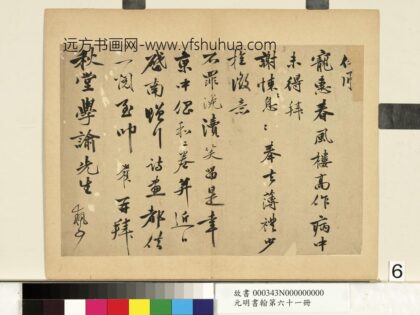 远方书画网-www.yfshuhua.com
仁用
寵惠春風樓高作病中
未得拜
謝悚息奉去薄禮少
推微意
不罪浼瀆笑留是幸
京中倡和二卷并近日
啟南贈行詩畫都往
一閱至叩 再拜
秋堂學諭先生
6
故書 000343N000000000
元明書翰第六十一冊